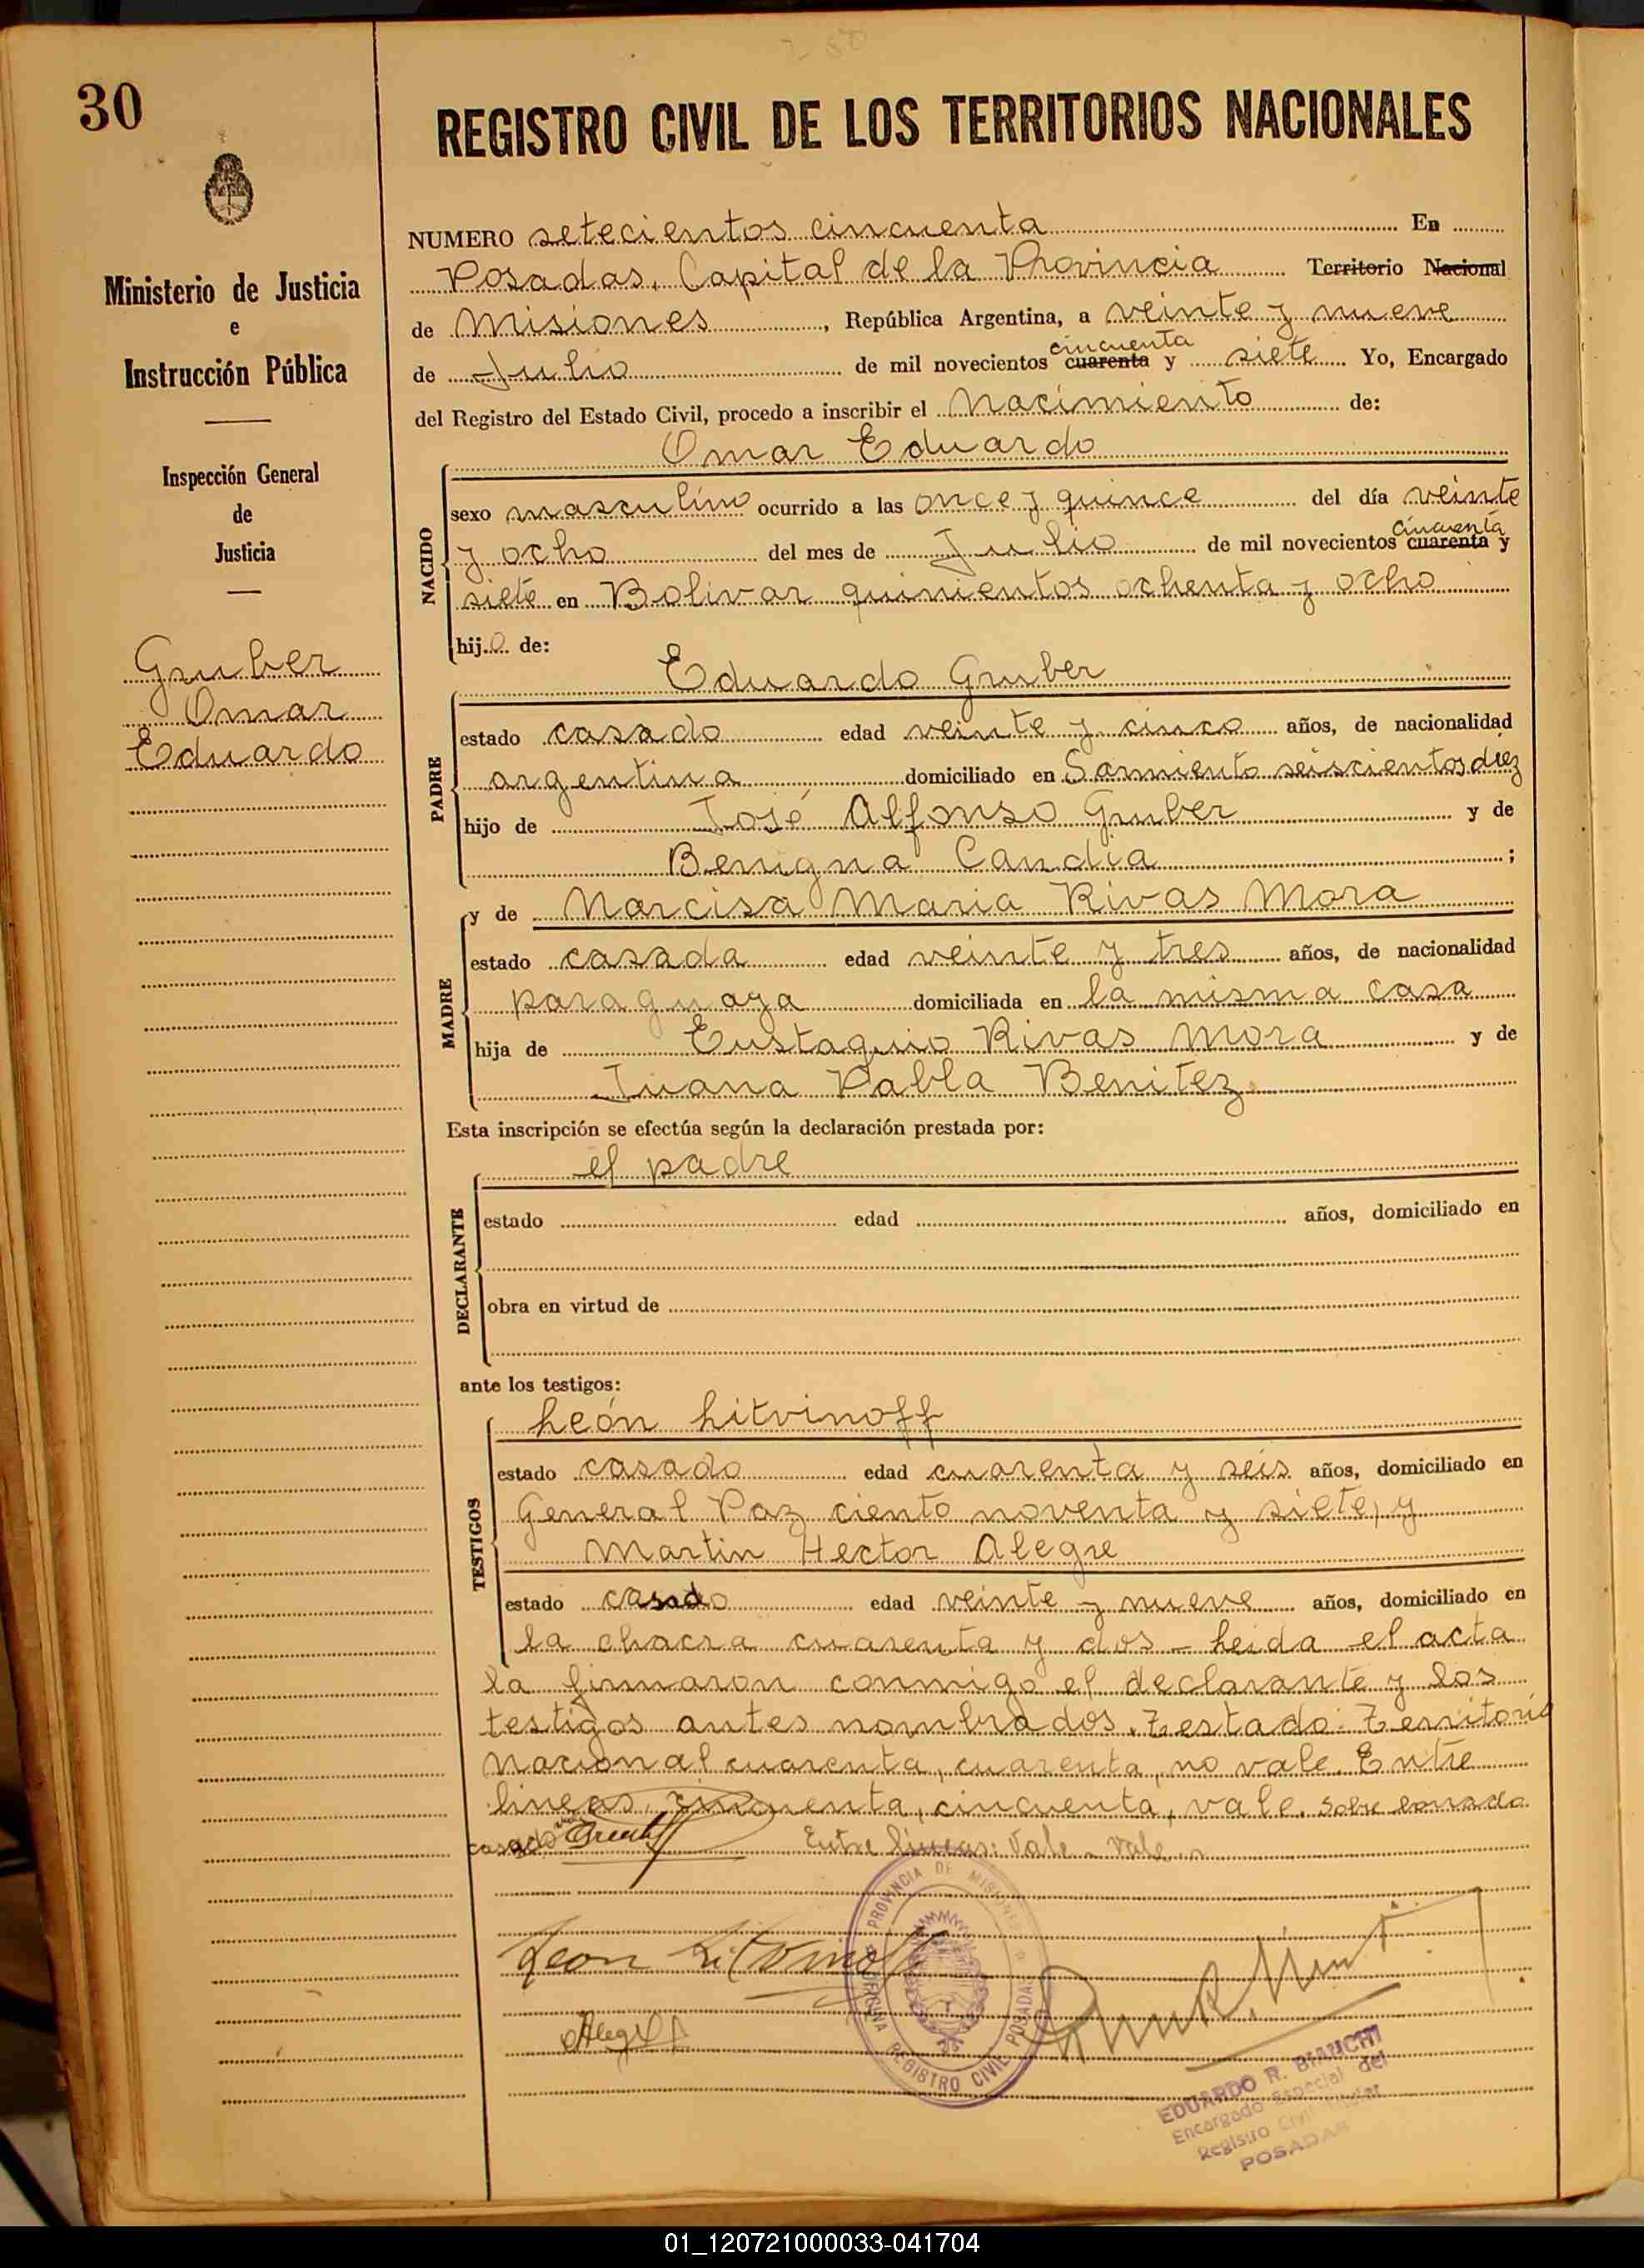 30
REGISTRO CIVIL DE LOS TERRITORIOS NACIONALES
Ministerio de Justicia
e
Instrucción Pública
Inspección General
de
Justicia
Gruber
Omar
Eduardo
NUMERO setecientos cincuenta En
Posadas, Capital de la Provincia Territorio Nacional
de Misiones, República Argentina, a veinte y nueve
cincuenta
de Julio de mil novecientos cuarenta y siete Yo, Encargado
del Registro del Estado Civil, procedo a inscribir el Nacimiento de:
Omar Eduardo
NACIDO
sexo masculino ocurrido a las once y quince del día veinte
cincuenta
y ocho del mes de Julio de mil novecientos cuarenta y
siete en Bolivar quinientos ochenta y ocho
hijo de:
Eduardo Gruber
PADRE
estado casado edad veinte y cinco años, de nacionalidad
argentina domiciliado en Sarmiento seiscientos diez
hijo de José Alfonso Gruber y de
Benigna Candia ;
y de Narcisa Maria Rivas Mora
MADRE
estado casada edad veinte y tres años, de nacionalidad
paraguaya domiciliada en la misma casa
hija de Eustaquio Rivas Mora y de
Juana Pabla Benitez
Esta inscripción se efectúa según la declaración prestada por:
el padre
DECLARANTE
estado edad años, domiciliado en
obra en virtud de
ante los testigos:
León Litvinoff
TESTIGOS
estado casado edad cuarenta y seis años, domiciliado en
General Paz ciento noventa y siete, y
Martin Hector Alegre
estado casado edad veinte y nueve años, domiciliado en
la chacra cuarenta y dos - Leida el acta
la firmaron conmigo el declarante y los
testigos antes nombrados. Testado: Territorio
Nacional cuarenta, cuarenta, no vale. Entre
lineas, cincuenta, cincuenta, vale. Sobre borrado
casado Entre lineas: Vale - Vale
PROVINCIA DE MISIONES
OFICINA REGISTRO CIVIL POSADAS
Leon Litvinoff
EDUARDO R. BIANCHI
Encargado Especial del
Registro Civil
POSADAS
01_120721000033-041704